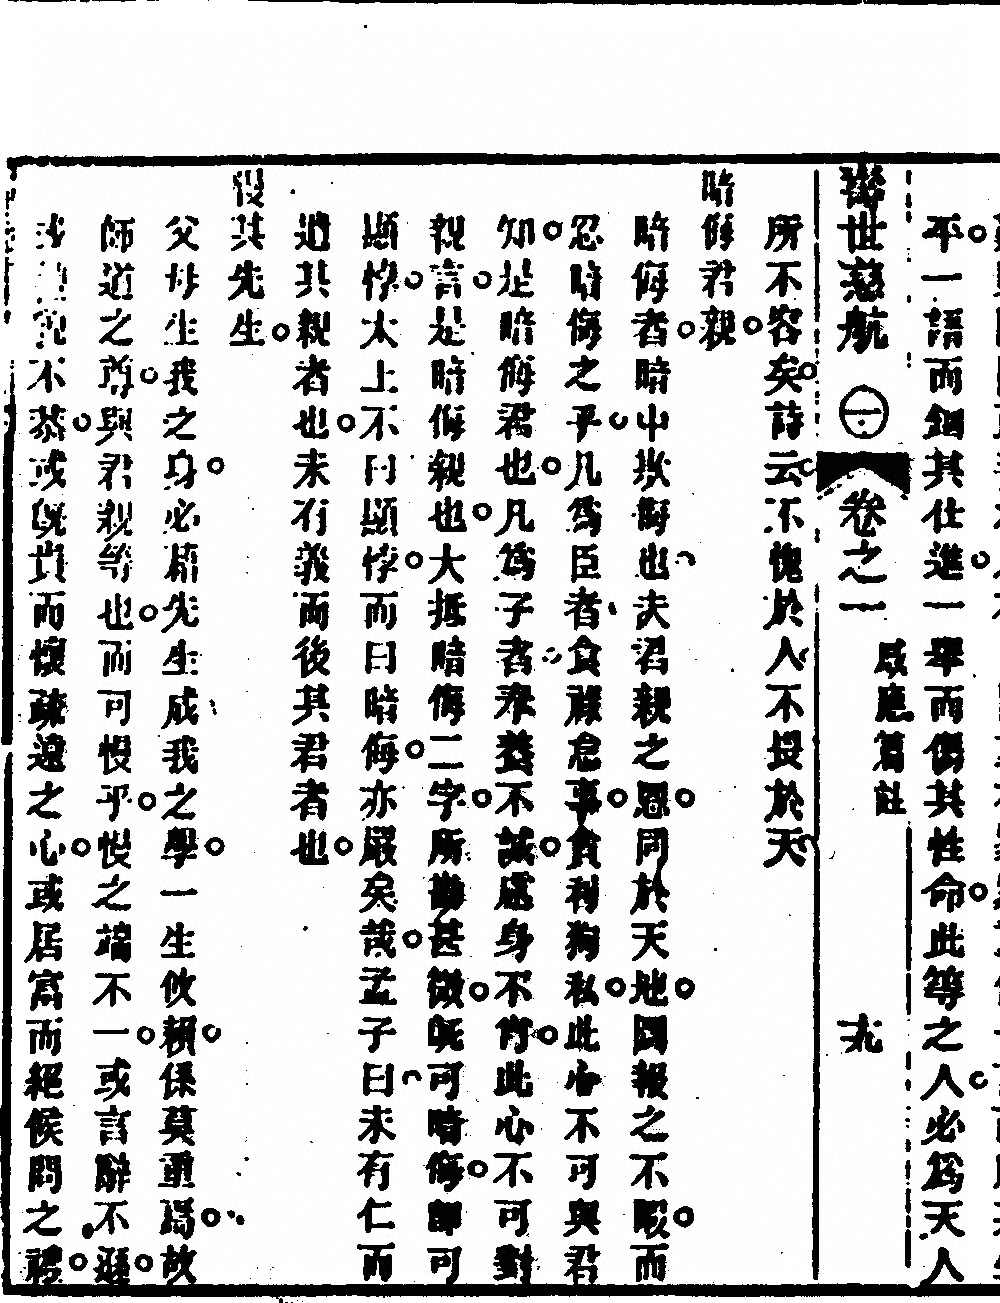 平一語而錮其仕進一舉而傷其性命此等之人必為天人
寶世慈航
㊀
卷之一
感應篇註
九
所不容矣詩云不愧於人不畏於天
暗侮君親
暗侮者暗中欺侮也夫君親之恩同於天地圖報之不暇而
忍暗侮之乎凡為臣者食祿怠事貪利狥私此心不可與君
知是暗侮君也凡為子者奉養不誠處身不肖此心不可對
親言是暗侮親也大抵暗侮二字所勘甚微旣可暗侮卽可
顯悖太上不曰顯悖而曰暗侮亦嚴矣哉孟子曰未有仁而
遺其親者也未有義而後其君者也
慢其先生
父母生我之身必藉先生成我之學一生攸賴係莫重焉故
師道之尊與君親等也而可慢乎慢之端不一或言辭不遜
或禮貌不恭或旣貴而懷疏遠之心或居富而絕候問之禮